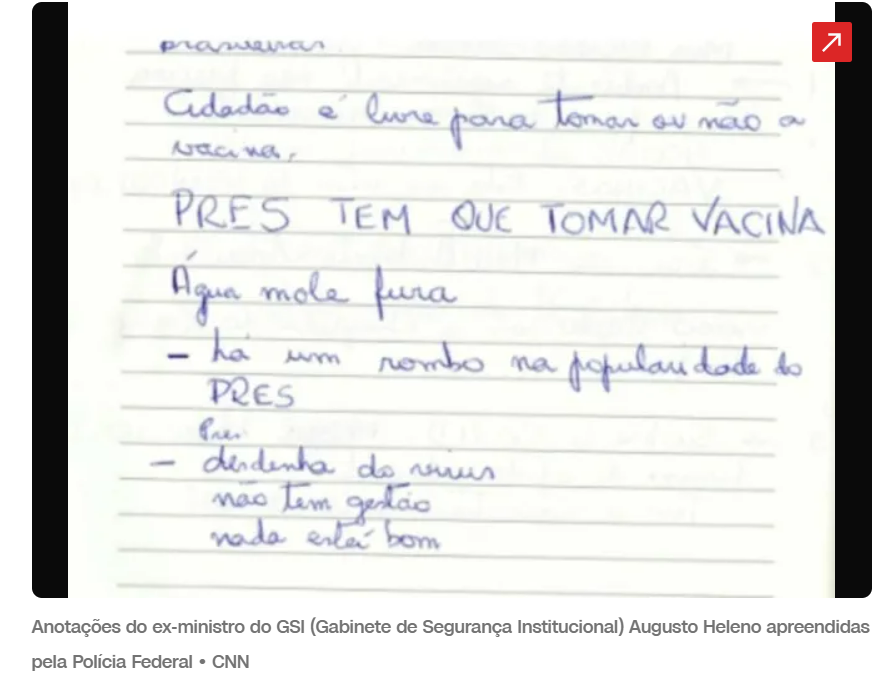 brasileiras
Cidadão é livre para tomar ou não a
vacina.
PRES TEM QUE TOMAR VACINA
Água mole fura
– há um rombo na popularidade do
PRES
Pres
– desdenha do vírus
não tem gestão
nada está bom
Anotações do ex-ministro do GSI (Gabinete de Segurança Institucional) Augusto Heleno apreendidas
pela Polícia Federal • CNN